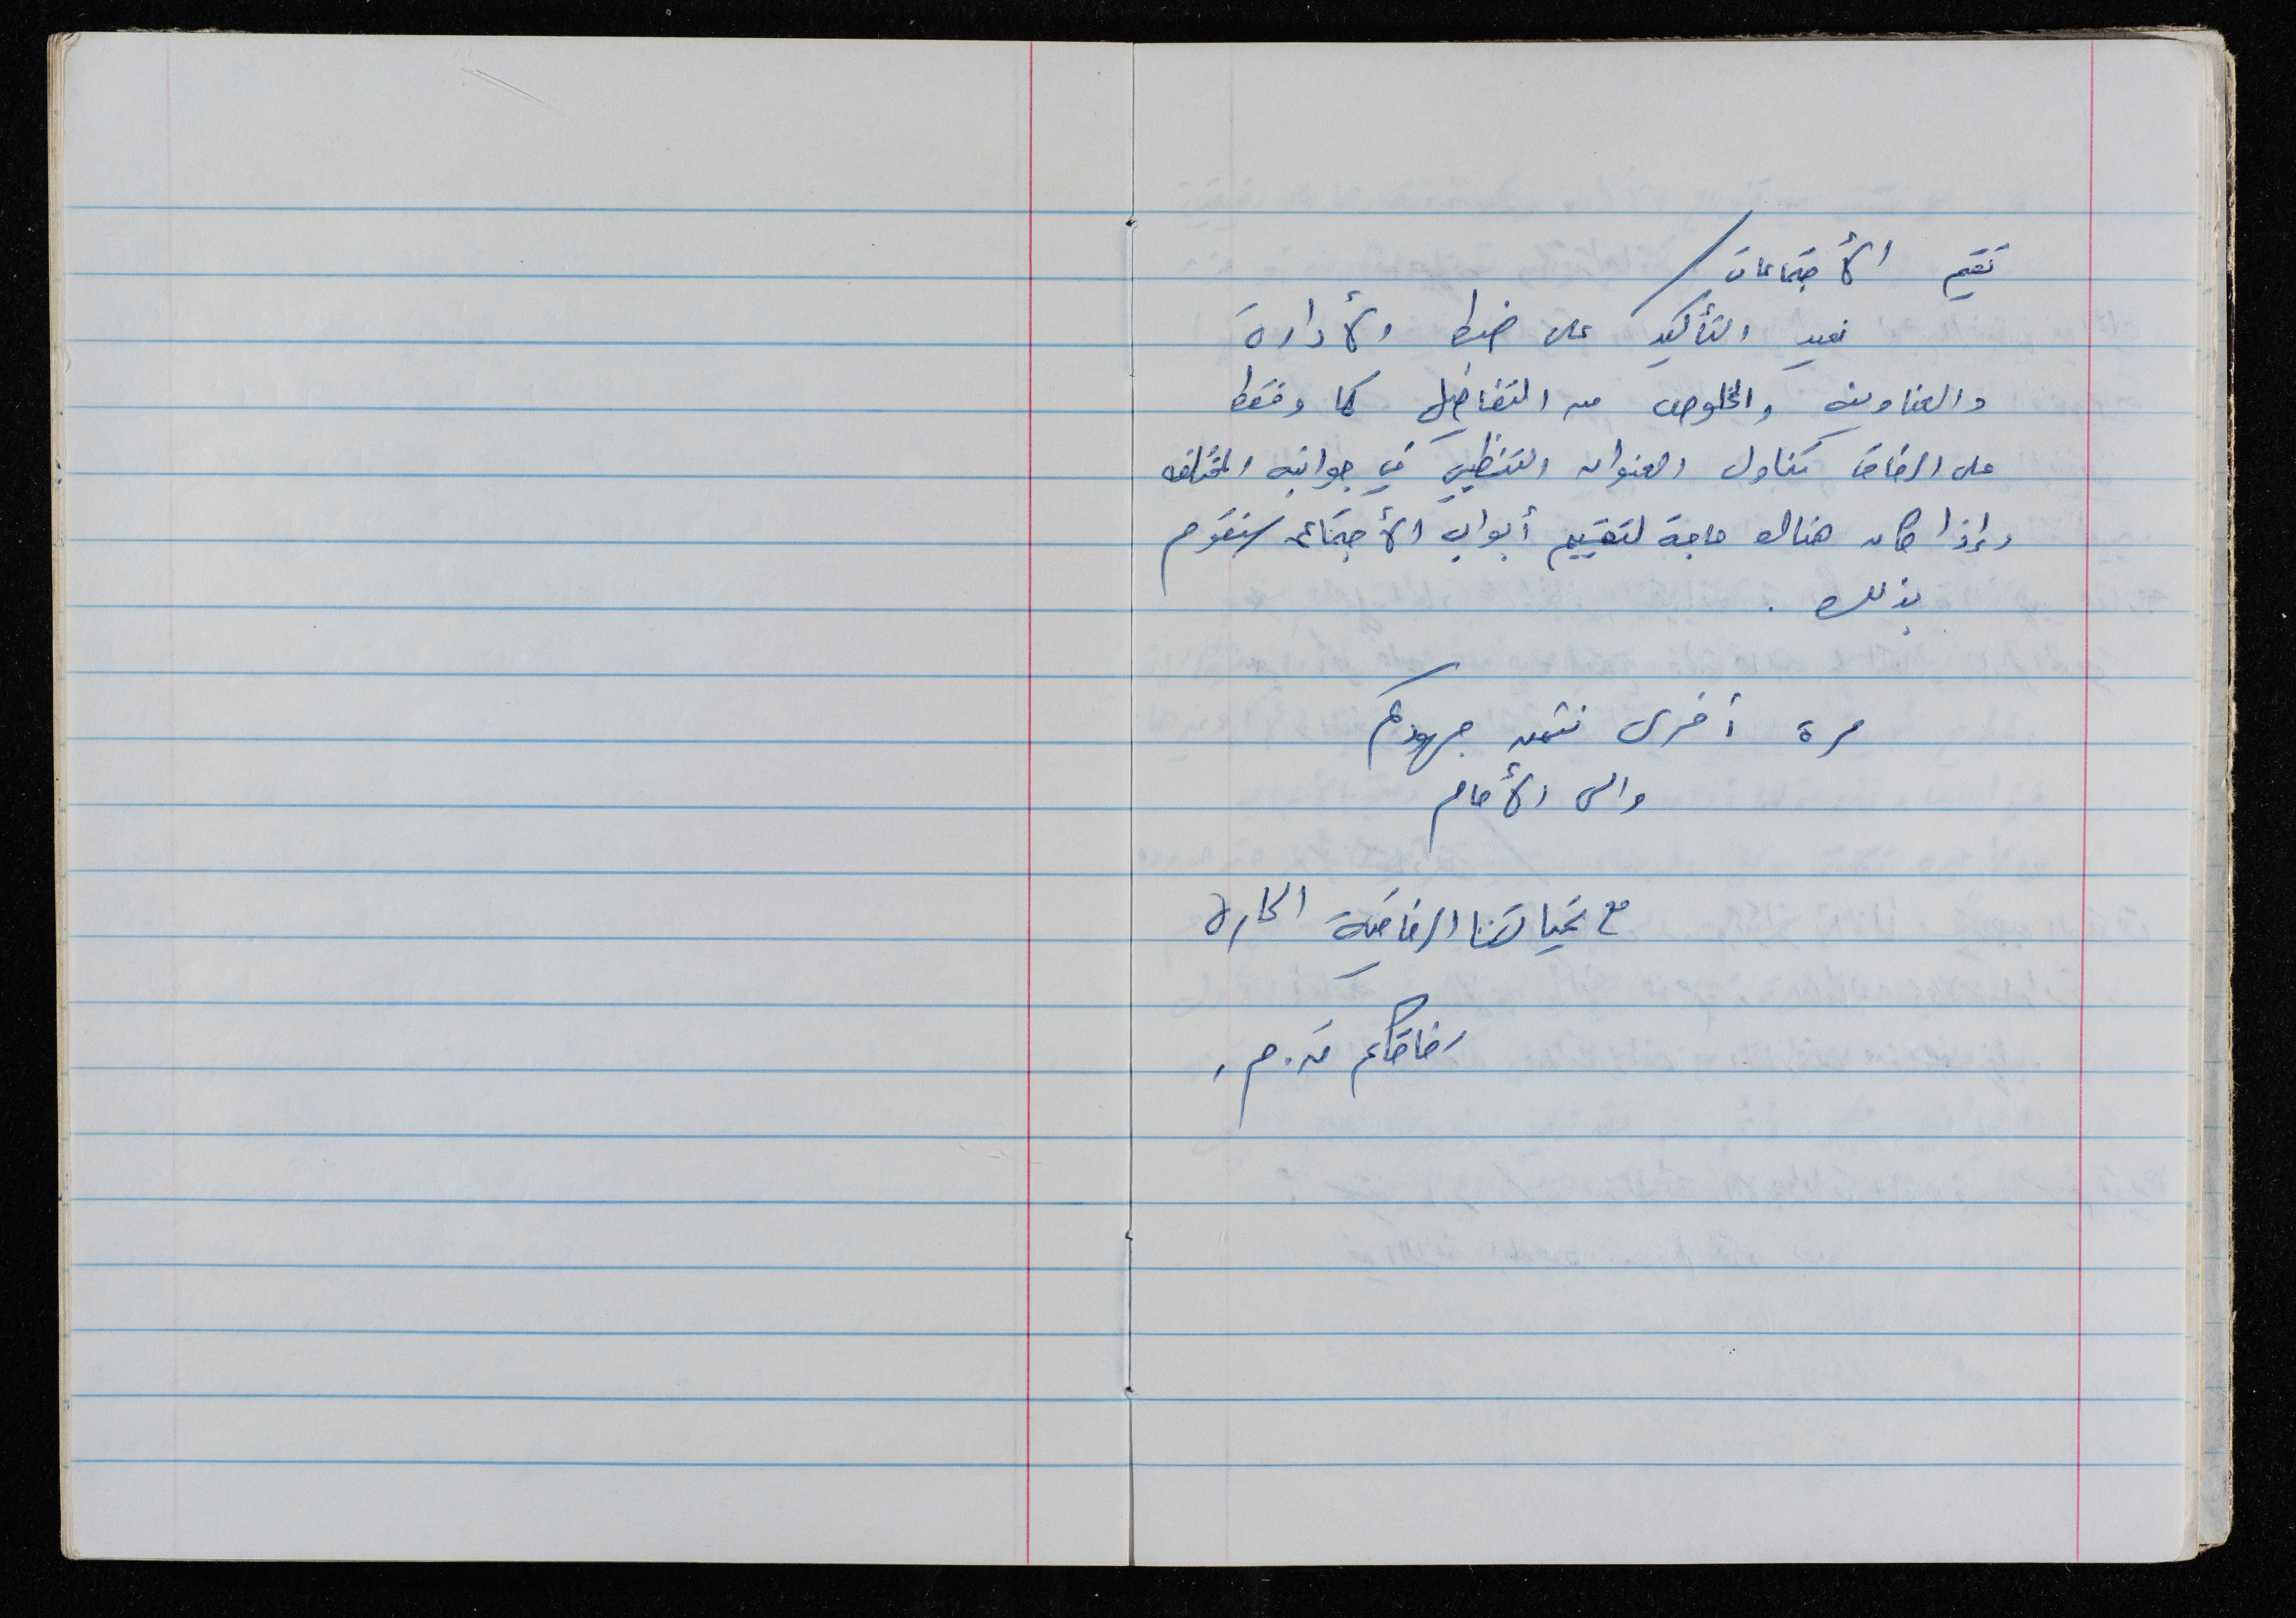 تقيم الأجتماعات /
نعيد التأكيد على ضبط الأدارة
والعناوين والخلوص من التفاصيل كما وفقط
على الرفاق تناول العنوان التنظيمي في جوانبه المختلفه
وإذا كان هناك حاجة لتقييم أبواب الأجتماع سنقوم
بذلك .
مرة أخرى نثمن جهودكم
والى الأمام
مع تحياتنا الرفاقية الحارة
رفاقكم ق.م.